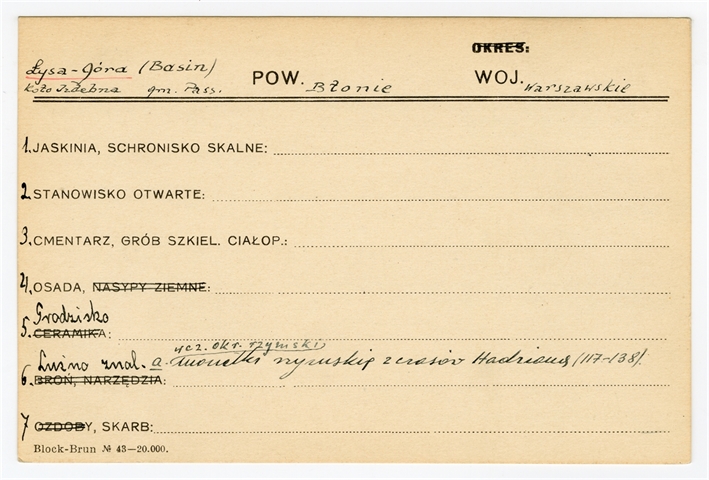 OKRES:
Łysa-Góra (Basin) POW. Błonie WOJ. Warszawskie
Koło Izdebna gm. Pass.
1. JASKINIA, SCHRONISKO SKALNE:
2 STANOWISKO OTWARTE:
3. CMENTARZ, GRÓB SZKIEL. CIAŁOP.:
4. OSADA, NASYPY ZIEMNE:
Grodzisko
5. CERAMIKA:
wcz. okr. rzymski
Luźno znal. a. monetki rzymskie z czasów Hadriana (117-138).
6. BROŃ, NARZĘDZIA:
7 OZDOBY, SKARB:
Block-Brun № 43—20.000.